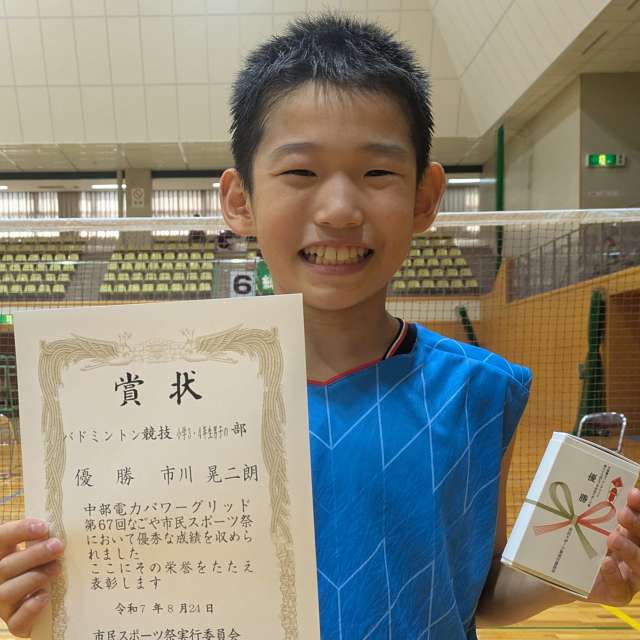 6
賞状
バドミントン競技 小学3・4年生男子の 部
優勝 市川 晃二朗
中部電力パワーグリッド
第67回なごや市民スポーツ祭
において優秀な成績を収めら
れました
ここにその栄誉をたたえ
表彰します
令和7年8月24日
市民スポーツ祭実行委員会
優勝